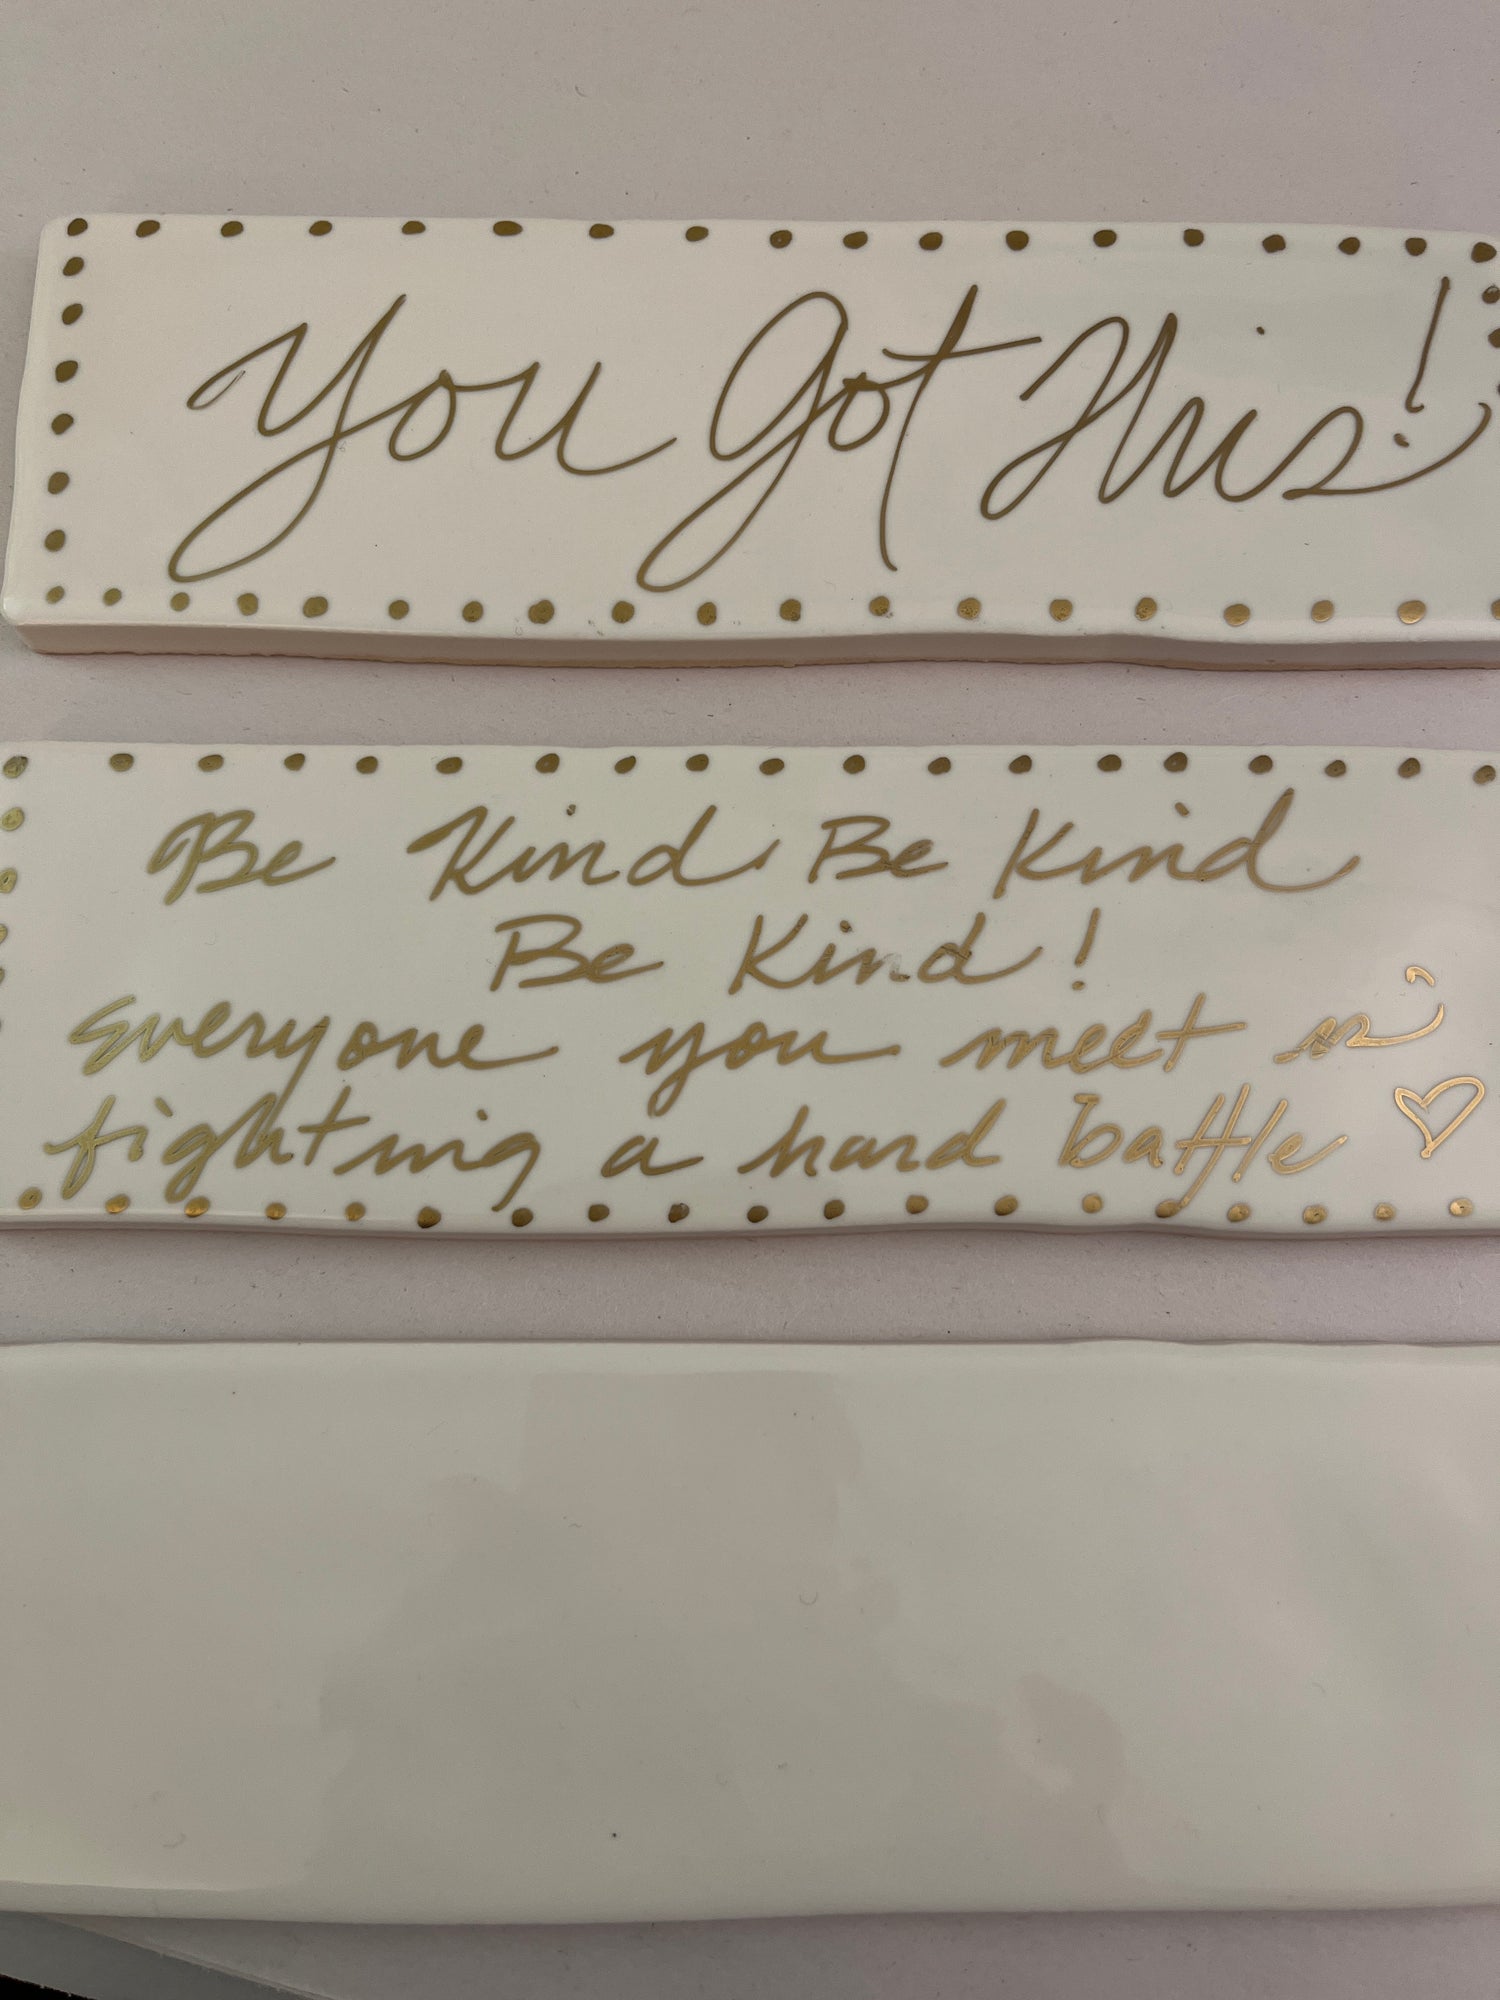 You Got This!
Be Kind Be Kind
Be Kind!
Everyone you meet is
fighting a hard battle